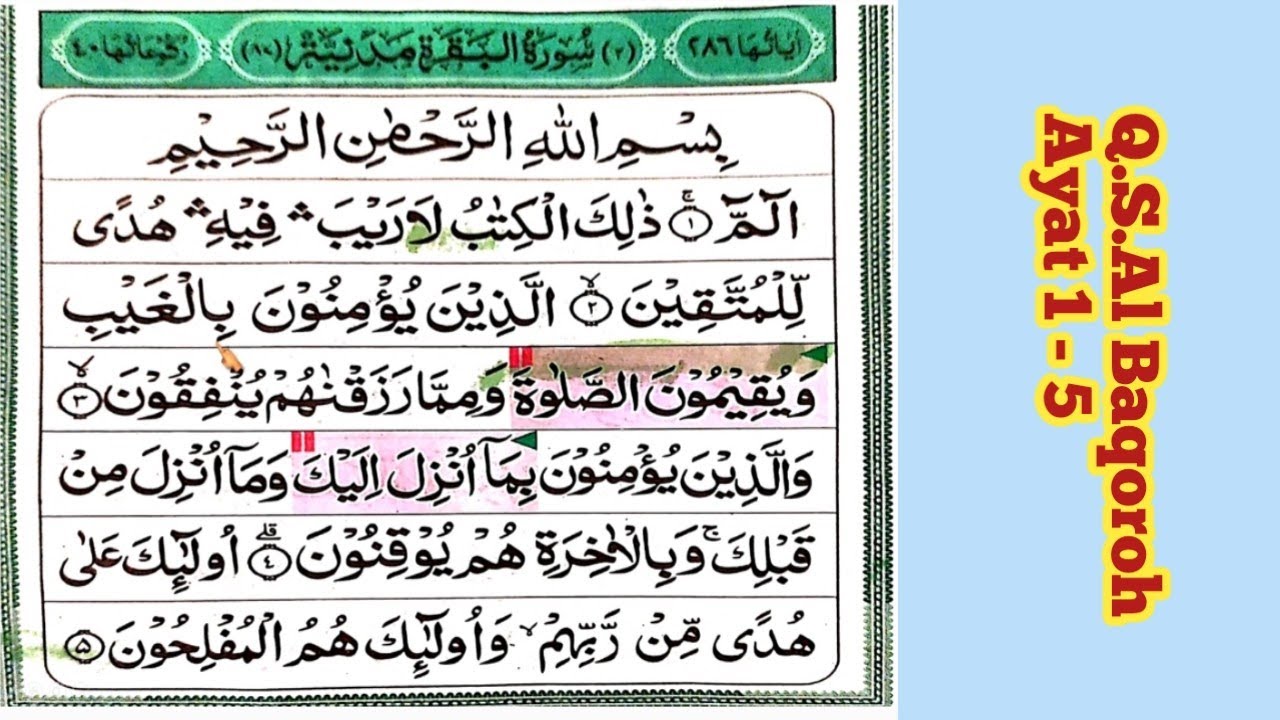 اٰياتُهَا ٢٨٦ (٢) سُوْرَةُ الْبَقَرَةِ مَدَنِيَّةٌ (٨٧) رُكُوْعَاتُهَا ٤٠
بِسْمِ اللّٰهِ الرَّحْمٰنِ الرَّحِيْمِ
الۤمّۤ ۚ ۝١ ذٰلِكَ الْكِتٰبُ لَا رَيْبَ ۛ فِيْهِ ۛ هُدًى
لِّلْمُتَّقِيْنَ ۙ ۝٢ الَّذِيْنَ يُؤْمِنُوْنَ بِالْغَيْبِ
وَيُقِيْمُوْنَ الصَّلٰوةَ وَمِمَّا رَزَقْنٰهُمْ يُنْفِقُوْنَ ۙ ۝٣
وَالَّذِيْنَ يُؤْمِنُوْنَ بِمَآ اُنْزِلَ اِلَيْكَ وَمَآ اُنْزِلَ مِنْ
قَبْلِكَ ۚ وَبِالْاٰخِرَةِ هُمْ يُوْقِنُوْنَ ۗ ۝٤ اُولٰۤئِكَ عَلٰى
هُدًى مِّنْ رَّبِّهِمْ ۙ وَاُولٰۤئِكَ هُمُ الْمُفْلِحُوْنَ ۝٥
Q.S.Al Baqoroh
Ayat 1 - 5